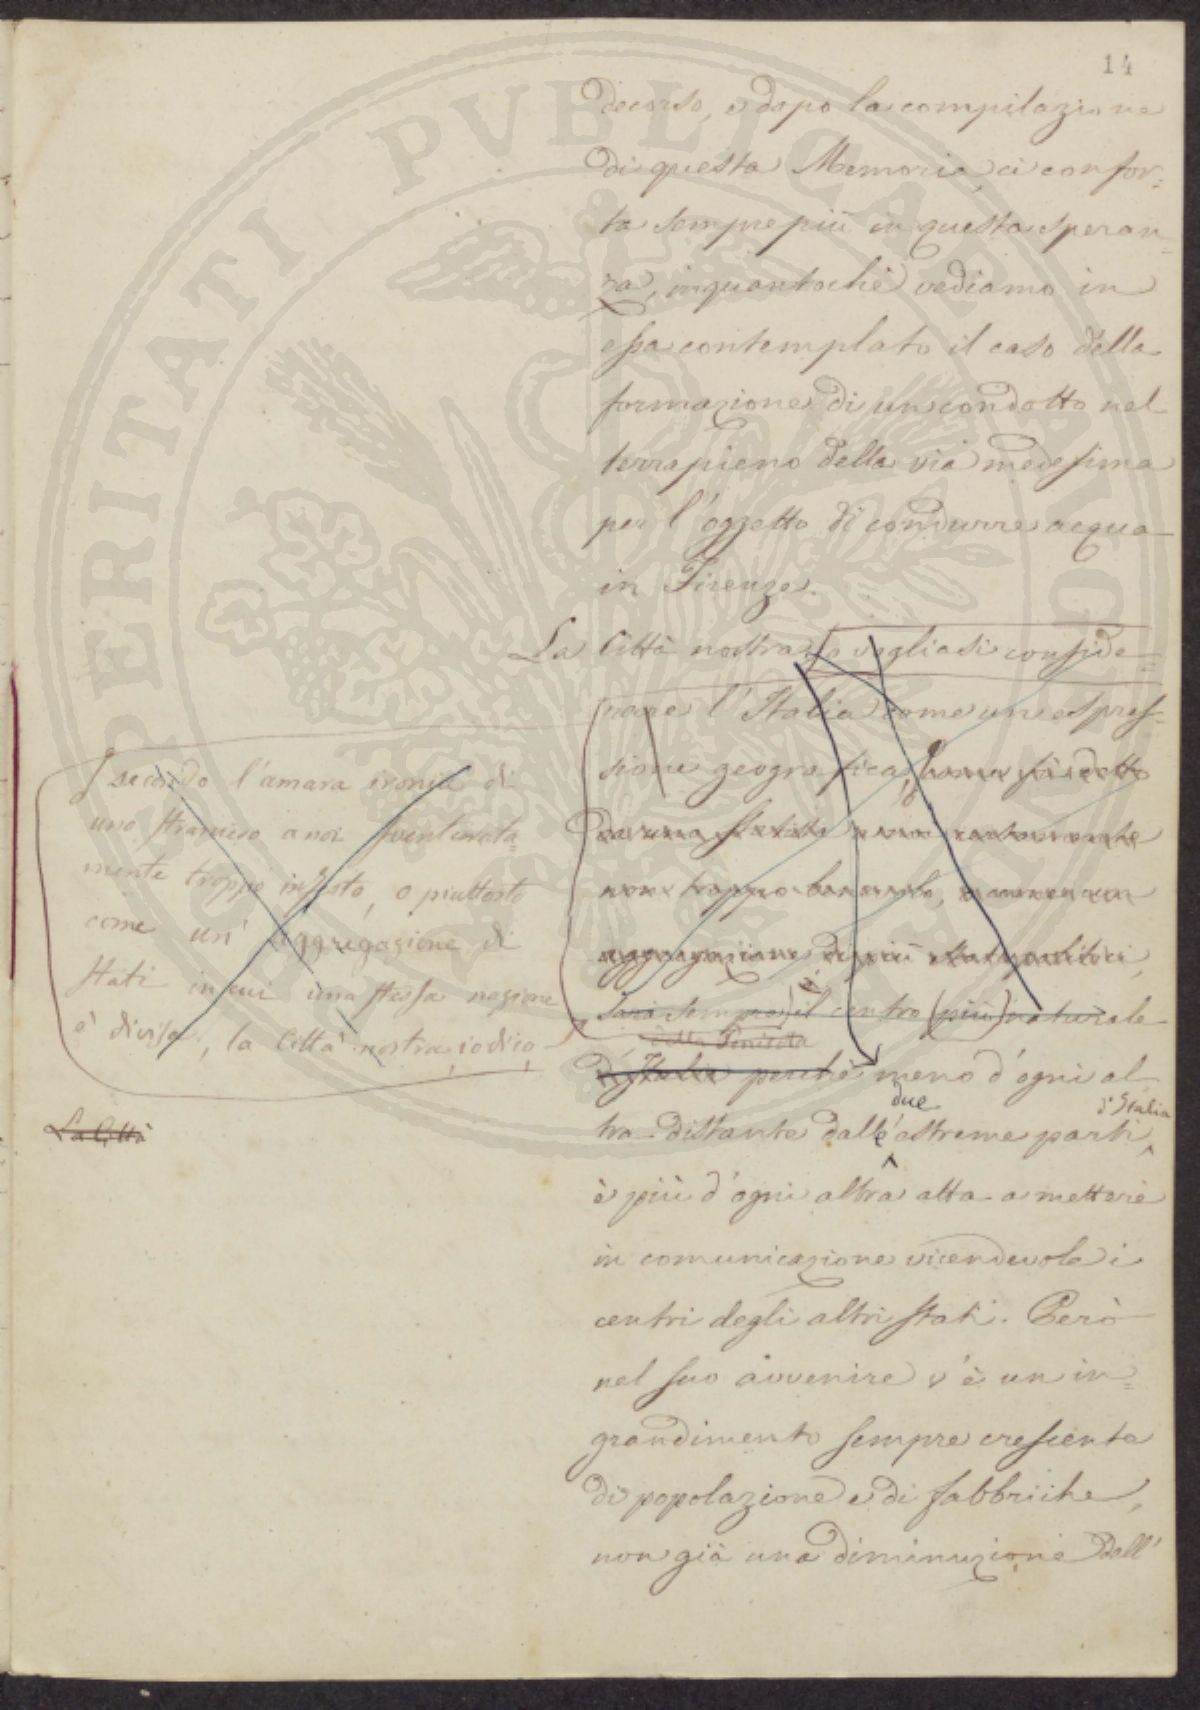 14
decorso, e dopo la compilazione
di questa Memoria, ci confor=
ta sempre più in questa speran=
za, inquantochè vediamo in
essa contemplato il caso della
formazione di un condotto nel
terrapieno della via medesima
per l'oggetto di condurre acqua
in Firenze.
La Città nostra, o vogliasi conside=
rare l'Italia come un espres=
sione geografica,
non troppo benevolo, o come un
aggregazione di più stati politici,
sarà sempre) il centro (più) naturale
della Penisola
d'Italia perchè meno d'ogni al
due
d'Italia
tra distante dalle estreme parti,
è più d'ogni altra atta a mettere
in comunicazione vicendevole i
centri degli altri stati. Però
nel suo avvenire v'è un in=
grandimento sempre crescente
di popolazione e di fabbriche,
non già una diminuzione dell'
secondo l'amara ironia di
uno straniero a noi sventurata=
mente troppo infesto, o piuttosto
come un' aggregazione di
stati in cui una stessa nazione
è divisa, la Città nostra, io dico,
La Città
PERITATI PVBLICAE